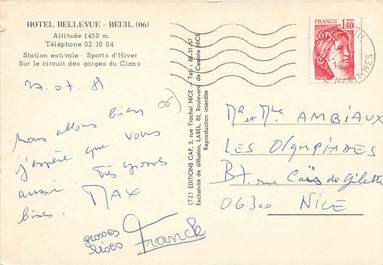 HOTEL BELLEVUE - BEUIL (06)
Altitude 1450 m.
Téléphone 02 30 04
Station estivale - Sports d'Hiver
Sur le circuit des gorges du Cians
27.07.81
Nous allons bien
j'espère que vous
aussi Très grosses
bises. MAX
grosses
bises Franck
(72) EDITIONS CAP, 2, rue Trachel NICE - Tél. : 88-31-57
Exclusivité de diffusion, LABEL, 62, Boulevard de Cessole NICE
Reproduction interdite
FRANCE
1,40
Mr et Mme AMBIAUX
LES OLYMPIADES
B7, rue Caïs de Gilette
06300 NICE